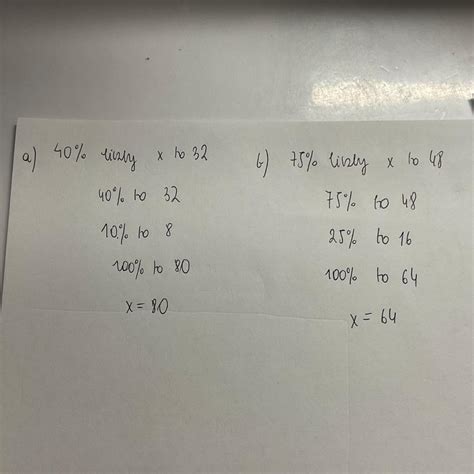 a) 40% liczby x to 32
40% to 32
10% to 8
100% to 80
x = 80
b) 75% liczby x to 48
75% to 48
25% to 16
100% to 64
x = 64